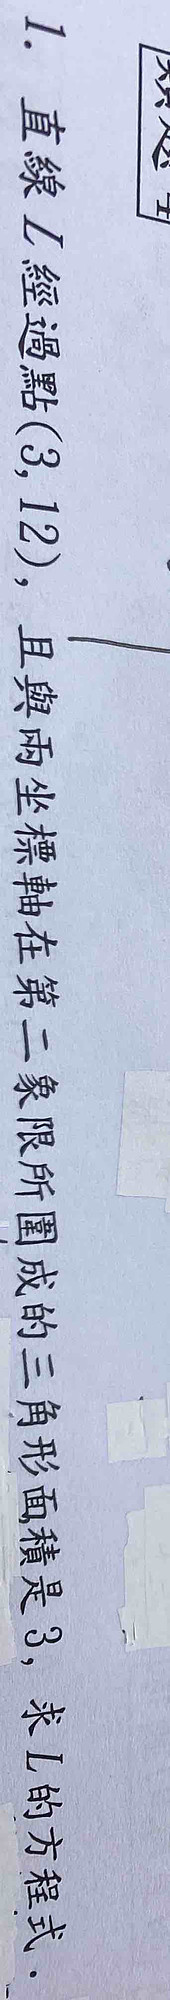 1. 直線 L 經過點(3, 12), 且與兩坐標軸在第二象限所圍成的三角形面積是 3, 求 L 的方程式.